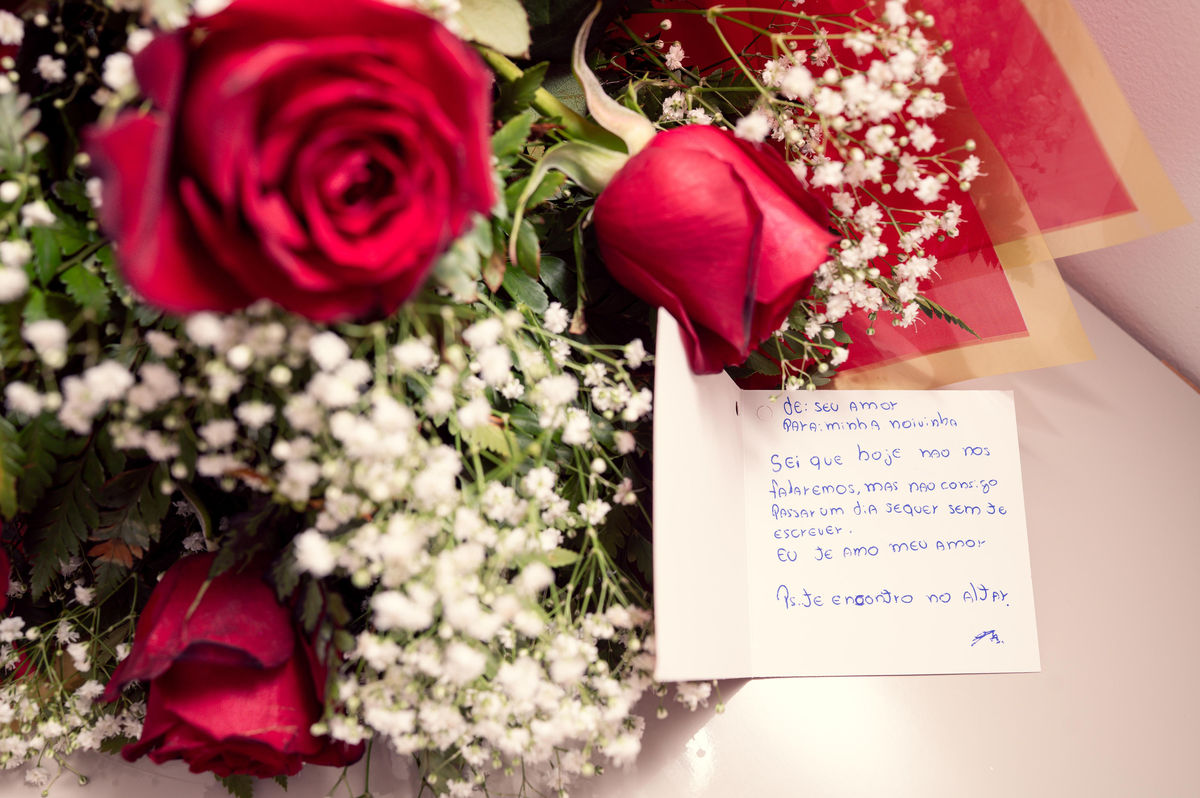 De: seu amor
Para: minha noivinha
Sei que hoje nao nos
falaremos, mas nao consigo
passar um dia sequer sem te
escrever.
Eu te amo meu amor
Ps: te encontro no altar.